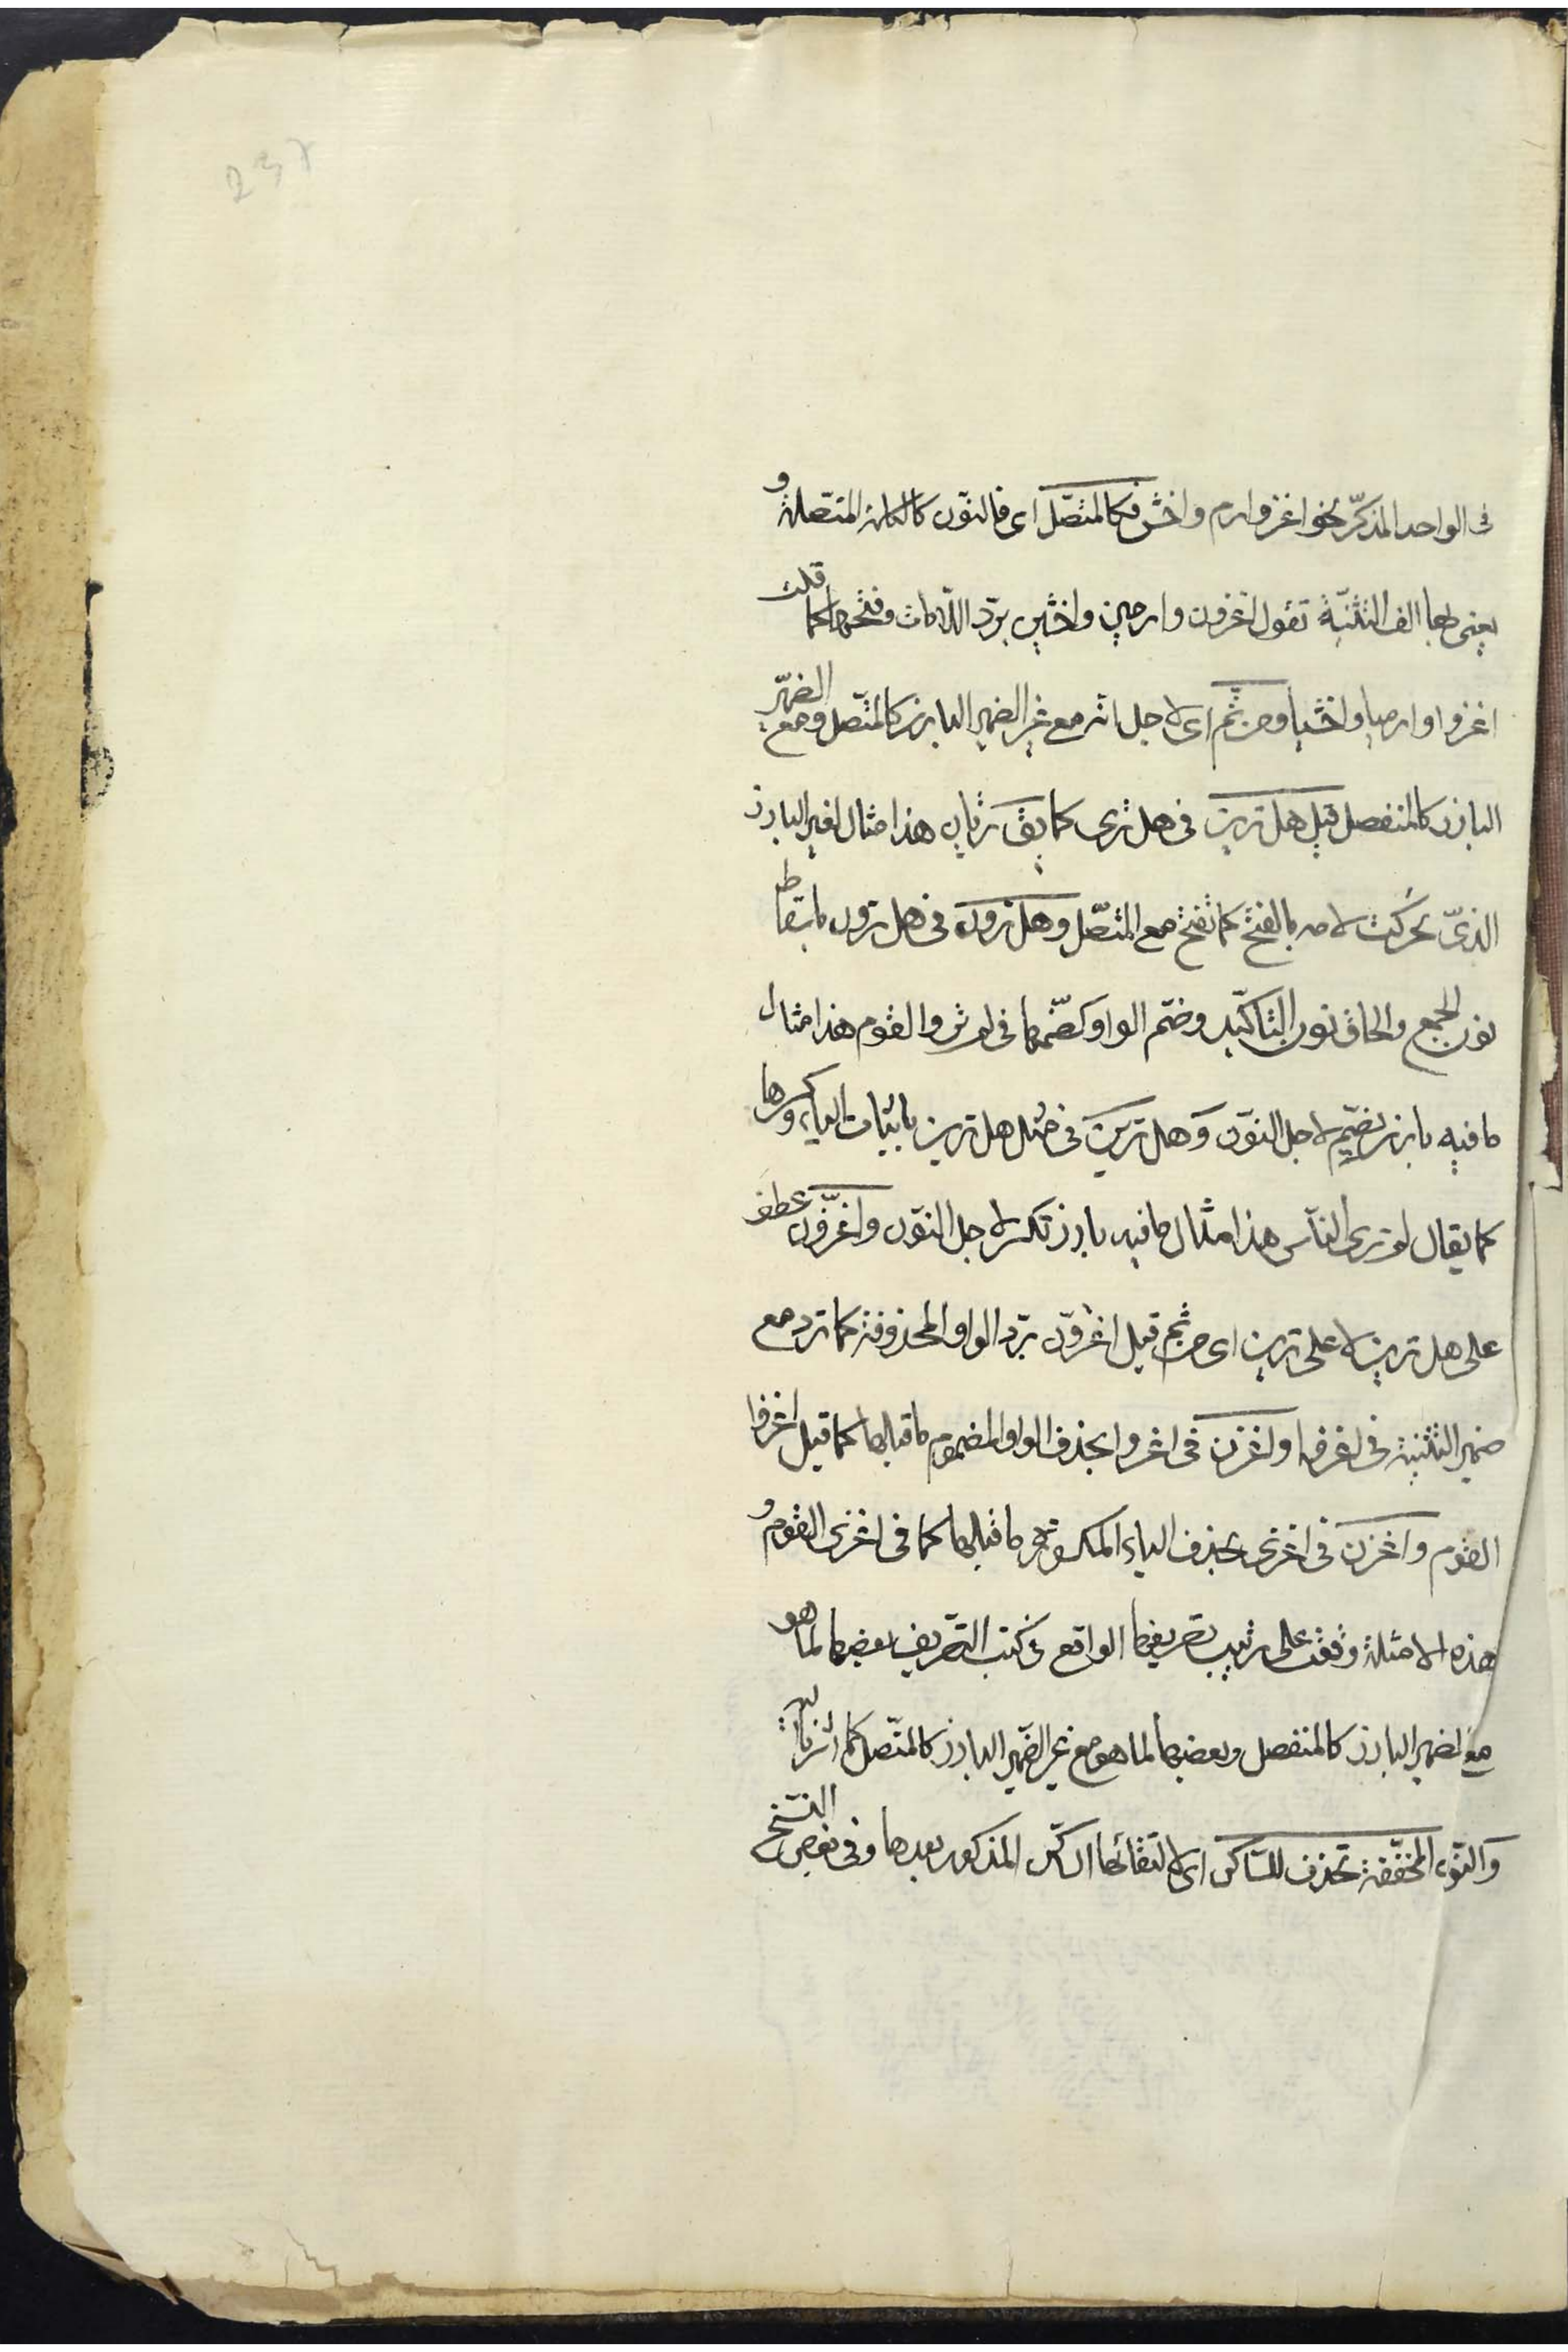 237
فى الواحد المذكّر نحو اغز وارم واخش فكالمتّصل اى فالنّون كالكلمة المتّصلة و
يعنى بها الف التثنية تقول اغزون وارمين واخشين بردّ اللّامات وفتحها كما قلت
اغزوا وارميا واخشيا ومن ثمّ اى لاجل انه مع غير الضمير البارز كالمتّصل ومع الضمير
البارز كالمنفصل قيل هل ترين فى هل ترى كما يق تريان هذا مثال لغير البارز
الذىّ تحركت لامه بالفتح كما تفتح مع المتّصل وهل ترون فى هل ترون باسقاط
نون الجمع والحاق نون التأكيد وضم الواو كضمّها فى لم تروا القوم هذا مثال
ما فيه بارز يضمّ لاجل النّون وهل ترين فى مثل هل ترين باثبات الياء وكسرها
كما يقال لم ترى النّاس هذا مثال ما فيه بارز تكسر لاجل النّون واغزونّ عطف
على هل ترين لا على ترين اى من ثم قيل اغزونّ بردّ الواو المحذوفة كما ترد مع
ضمير التثنية فى اغزوا واغزن فى اغزوا بحذف الواو المضموم ما قبلها كما قيل اغزوا
القوم واغزن فى اغزى بحذف الياء المكسورة ما قبلها كما فى اغزى القوم و
هذه الامثلة وقعت على ترتيب تصريفها الواقع فى كتب التصريف بعضها لما هو
مع الضمير البارز كالمنفصل وبعضها لما هو مع غير الضّمير البارز كالمتّصل كما اشرنا اليه
والنّون المخفّفة تحذف للسّاكن اى لالتقائها السّاكن المذكور بعدها وفى بعض النسخ